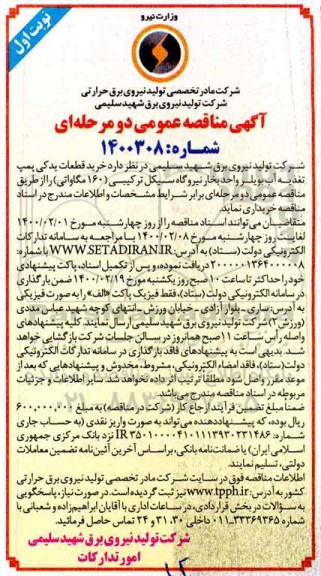 وزارت نیرو
نوبت اول
شرکت مادر تخصصی تولید نیروی برق حرارتی
شرکت تولید نیروی برق شهید سلیمی
آگهی مناقصه عمومی دو مرحله‌ای
شماره: ۱۴۰۰۳۰۸
شرکت تولید نیروی برق شهید سلیمی در نظر دارد خرید قطعات یدکی پمپ
تغذیه آب بویلر واحد بخار نیروگاه سیکل ترکیبی (۱۶۰ مگاواتی) را از طریق
مناقصه عمومی دو مرحله‌ای برابر شرایط مشخصات و اطلاعات مندرج در اسناد
مناقصه خریداری نماید.
متقاضیان می‌توانند اسناد مناقصه را از روز چهارشنبه مورخ ۱۴۰۰/۰۲/۰۱
لغایت روز چهارشنبه مورخ ۱۴۰۰/۰۲/۰۸ با مراجعه به سامانه تدارکات
الکترونیکی دولت (ستاد) به آدرس: WWW.SETADIRAN.IR با شماره:
۲۰۰۰۰۰۱۳۶۴۰۰۰۰۰۸ دریافت نموده و پس از تکمیل اسناد، پاکت پیشنهادی
خود را حداکثر تا ساعت ۱۰ صبح روز یکشنبه مورخ ۱۴۰۰/۰۲/۱۹ ضمن بارگذاری
در سامانه الکترونیکی دولت (ستاد)، فقط فیزیک پاکت «الف» را به صورت فیزیکی
به آدرس: ساری- بلوار آزادی- خیابان ورزش- انتهای کوچه شهید عباس مجدی
(ورزش ۳) شرکت تولید نیروی برق شهید سلیمی ارسال نمایند. کلیه پیشنهادهای
واصله رأس ساعت ۱۱ صبح همانروز در سالن جلسات شرکت بازگشایی خواهد
شد. بدیهی است به پیشنهادهای فاقد بارگذاری در سامانه تدارکات الکترونیکی
دولت (ستاد)، فاقد امضاء الکترونیکی، مشروط، مخدوش و پیشنهادهایی که بعد از
موعد مقرر واصل شود مطلقاً ترتیب اثر داده نخواهد شد. سایر اطلاعات و جزئیات
مربوطه در اسناد مناقصه مندرج می‌باشد.
ضمناً مبلغ تضمین فرآیند ارجاع کار (شرکت در مناقصه) به مبلغ ۶۰۰,۰۰۰,۰۰۰
ریال بوده، که پیشنهاددهنده می‌تواند به صورت واریز نقدی (به حساب جاری
شماره: IR نزد بانک مرکزی جمهوری
اسلامی ایران) یا ضمانت‌نامه بانکی، براساس آخرین آئین‌نامه تضمین معاملات
دولتی، تسلیم نمایند.
اطلاعات مناقصه فوق در سایت شرکت مادر تخصصی تولید نیروی برق حرارتی
کشور به آدرس: www.tpph.ir نیز ثبت گردیده است. در صورت نیاز، پاسخگویی
به سؤالات در بخش قراردادی، در ساعات اداری با آقایان ابراهیم‌زاده و شعبانی با
شماره ۳۳۳۶۹۳۶۵-۰۱۱ داخلی ۳۰، ۳۱ و ۲۴ تماس حاصل فرمائید.
شرکت تولید نیروی برق شهید سلیمی
امور تدارکات